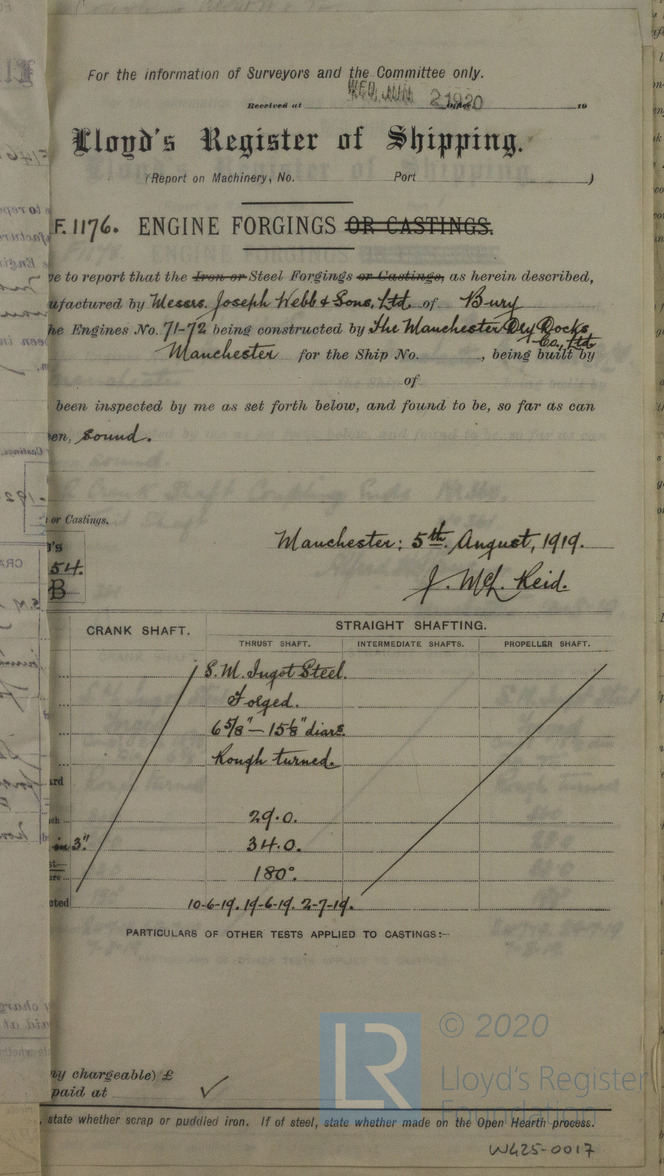 For the information of Surveyors and the Committee only.
Received at WED. JUN 2 1920 19
Lloyd's Register of Shipping.
(Report on Machinery, No. Port )
F. 1176. ENGINE FORGINGS OR CASTINGS.
ve to report that the Iron or Steel Forgings or Castings, as herein described,
ufactured by Messrs. Joseph Webb & Sons, Ltd. of Bury
he Engines No. 71-72 being constructed by The Manchester Dry Docks
Co, Ltd
Manchester for the Ship No. , being built by
of
been inspected by me as set forth below, and found to be, so far as can
en, sound.
or Castings.
's
54.
B
Manchester; 5th August, 1919.
J. McL. Reid.
CRANK SHAFT. STRAIGHT SHAFTING.
THRUST SHAFT. INTERMEDIATE SHAFTS. PROPELLER SHAFT.
S. M. Ingot Steel.
Forged.
6 5/8" — 15 1/8" diars.
Rough turned.
ard
29.0.
in 3". 34.0.
180°.
cted 10-6-19. 19-6-19. 2-7-19.
PARTICULARS OF OTHER TESTS APPLIED TO CASTINGS:—
ny chargeable) £
paid at ✓
, state whether scrap or puddled iron. If of steel, state whether made on the Open Hearth process.
LR
© 2020
Lloyd's Register
Foundation
W425-0017